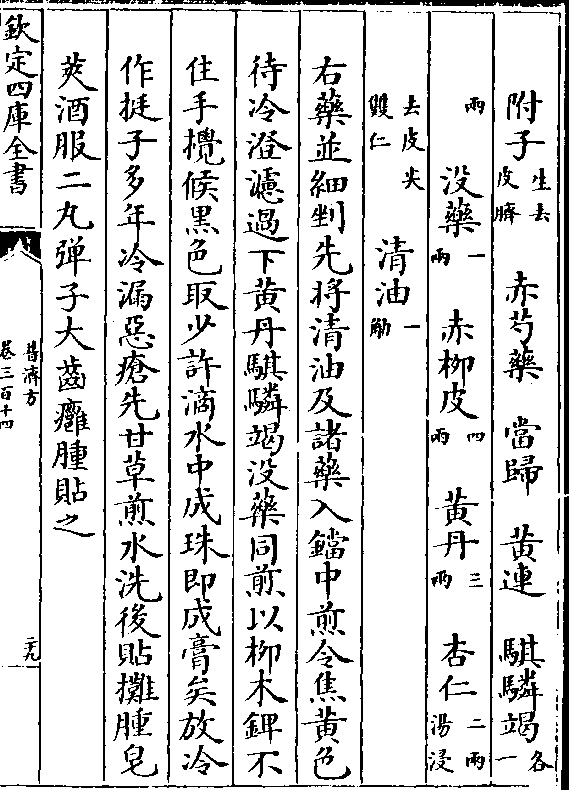 附子生去皮臍 赤芍藥 當歸 黄連 騏驎竭各一
兩 没藥一兩 赤柳皮四兩 黄丹三兩 杏仁二兩湯浸
去皮尖雙仁 清油一觔
右藥並細剉先將清油及諸藥入鐺中煎令焦黄色
待冷澄濾過下黄丹騏驎竭没藥同煎以柳木錍不
住手攪候黒色取少許滴水中成珠即成膏矣放冷
作挺子多年冷漏惡瘡先甘草煎水洗後貼攤腫皂
莢酒服二丸弹子大齒癰腫貼之
欽定四庫全書
普濟方
卷三百十四
二九